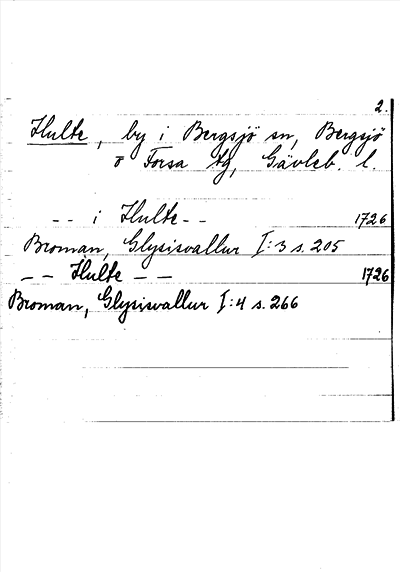 2.
Hulte, by i Bergsjö sn, Bergsjö
o Forsa tg, Gävleb. l.
-- i Hulte -- 1726
Broman, Glysisvallur I:3 s. 205
-- Hulte -- 1726
Broman, Glysisvallur I:4 s. 266